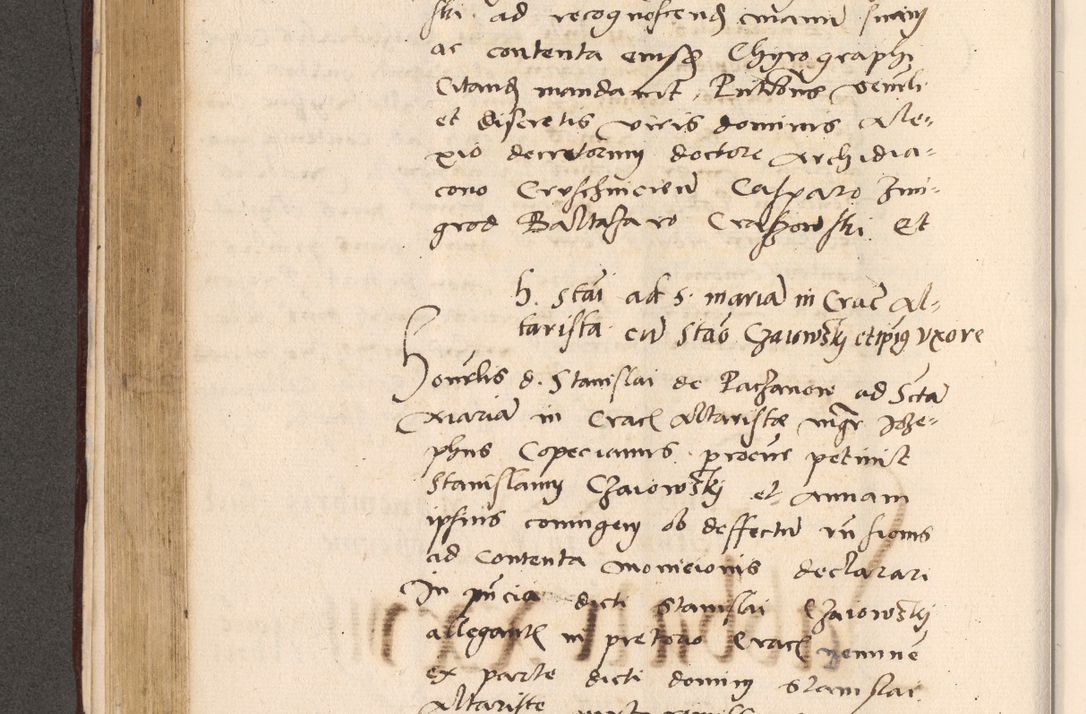 ski ad recognoscend manu suam
ac contenta eiusd Chyrographi
Citand mandavit, Pntibus venrli
et discretis viris dominis Ale=
xio decretorum doctore Archidia=
cono Casparo Zmi=
grod Baltasaro Et
h. Stai ad s. maria in Crac Al=
tarista cu Stao Czaiowski et ipius Vxore
Honrlis d. Stanislai de Paczanow ad Scta
Maria in Crac Altariste mgr Joze=
phus Copecianus procur petiuit
Stanislaum Czaiowski et Annam
ipsius coniugem ob deffectu
ad contenta monicionis declarari
In pncia dicti Stanislai Czaiowski
allegant in pretorio Crac nemine
ex parte dicti domini Stanislai
Altariste